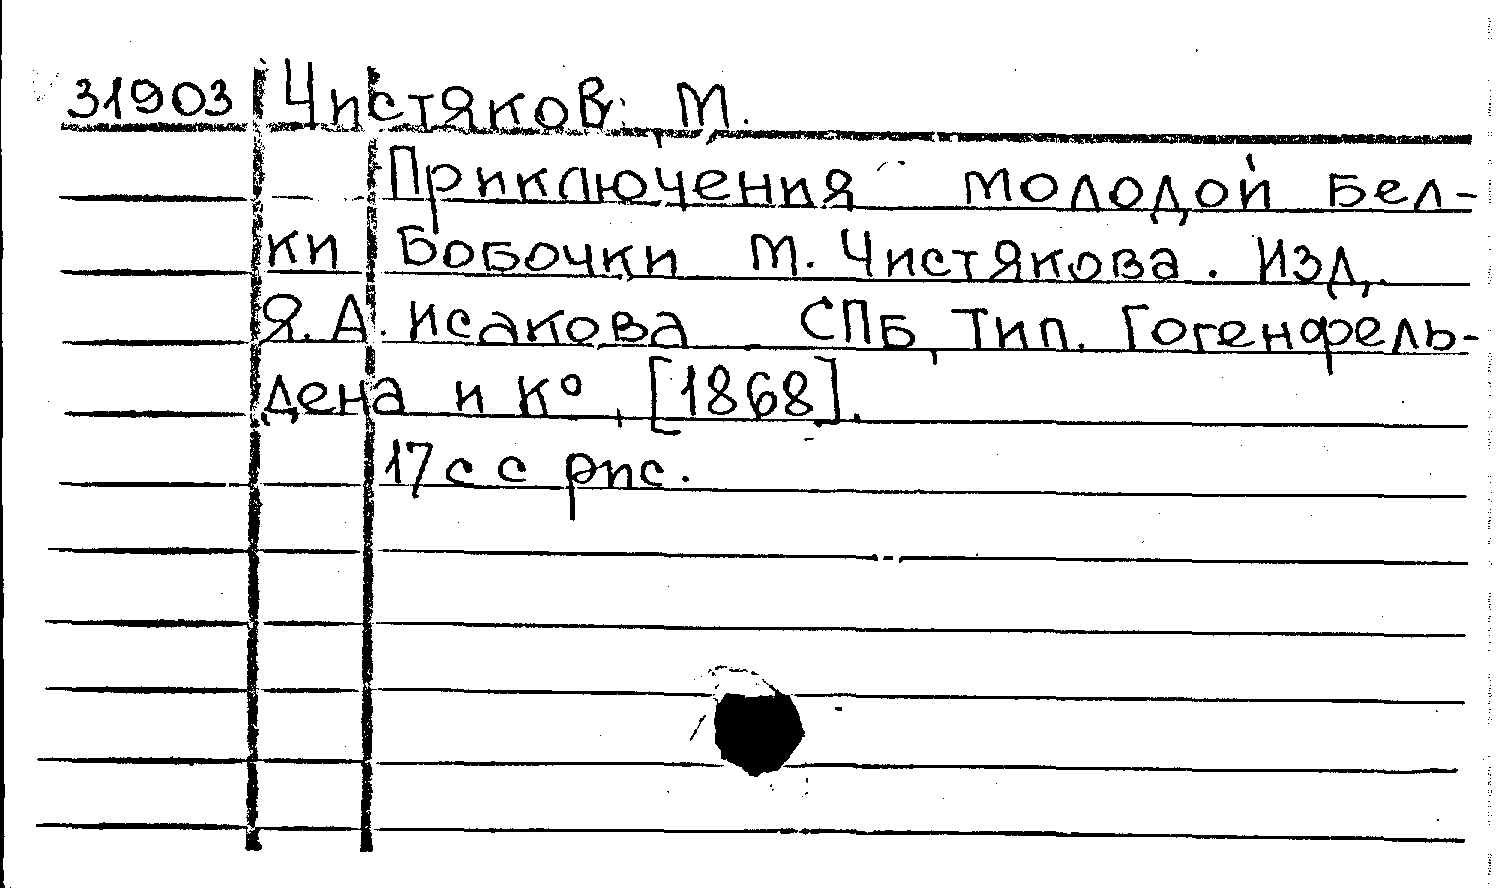 31903 Чистяков, М.
Приключения молодой бел-
ки Бобочки М. Чистякова. Изд.
Я. А. Исакова СПБ, тип. Гогенфель-
дена и К°, [1868].
17 с с рис.